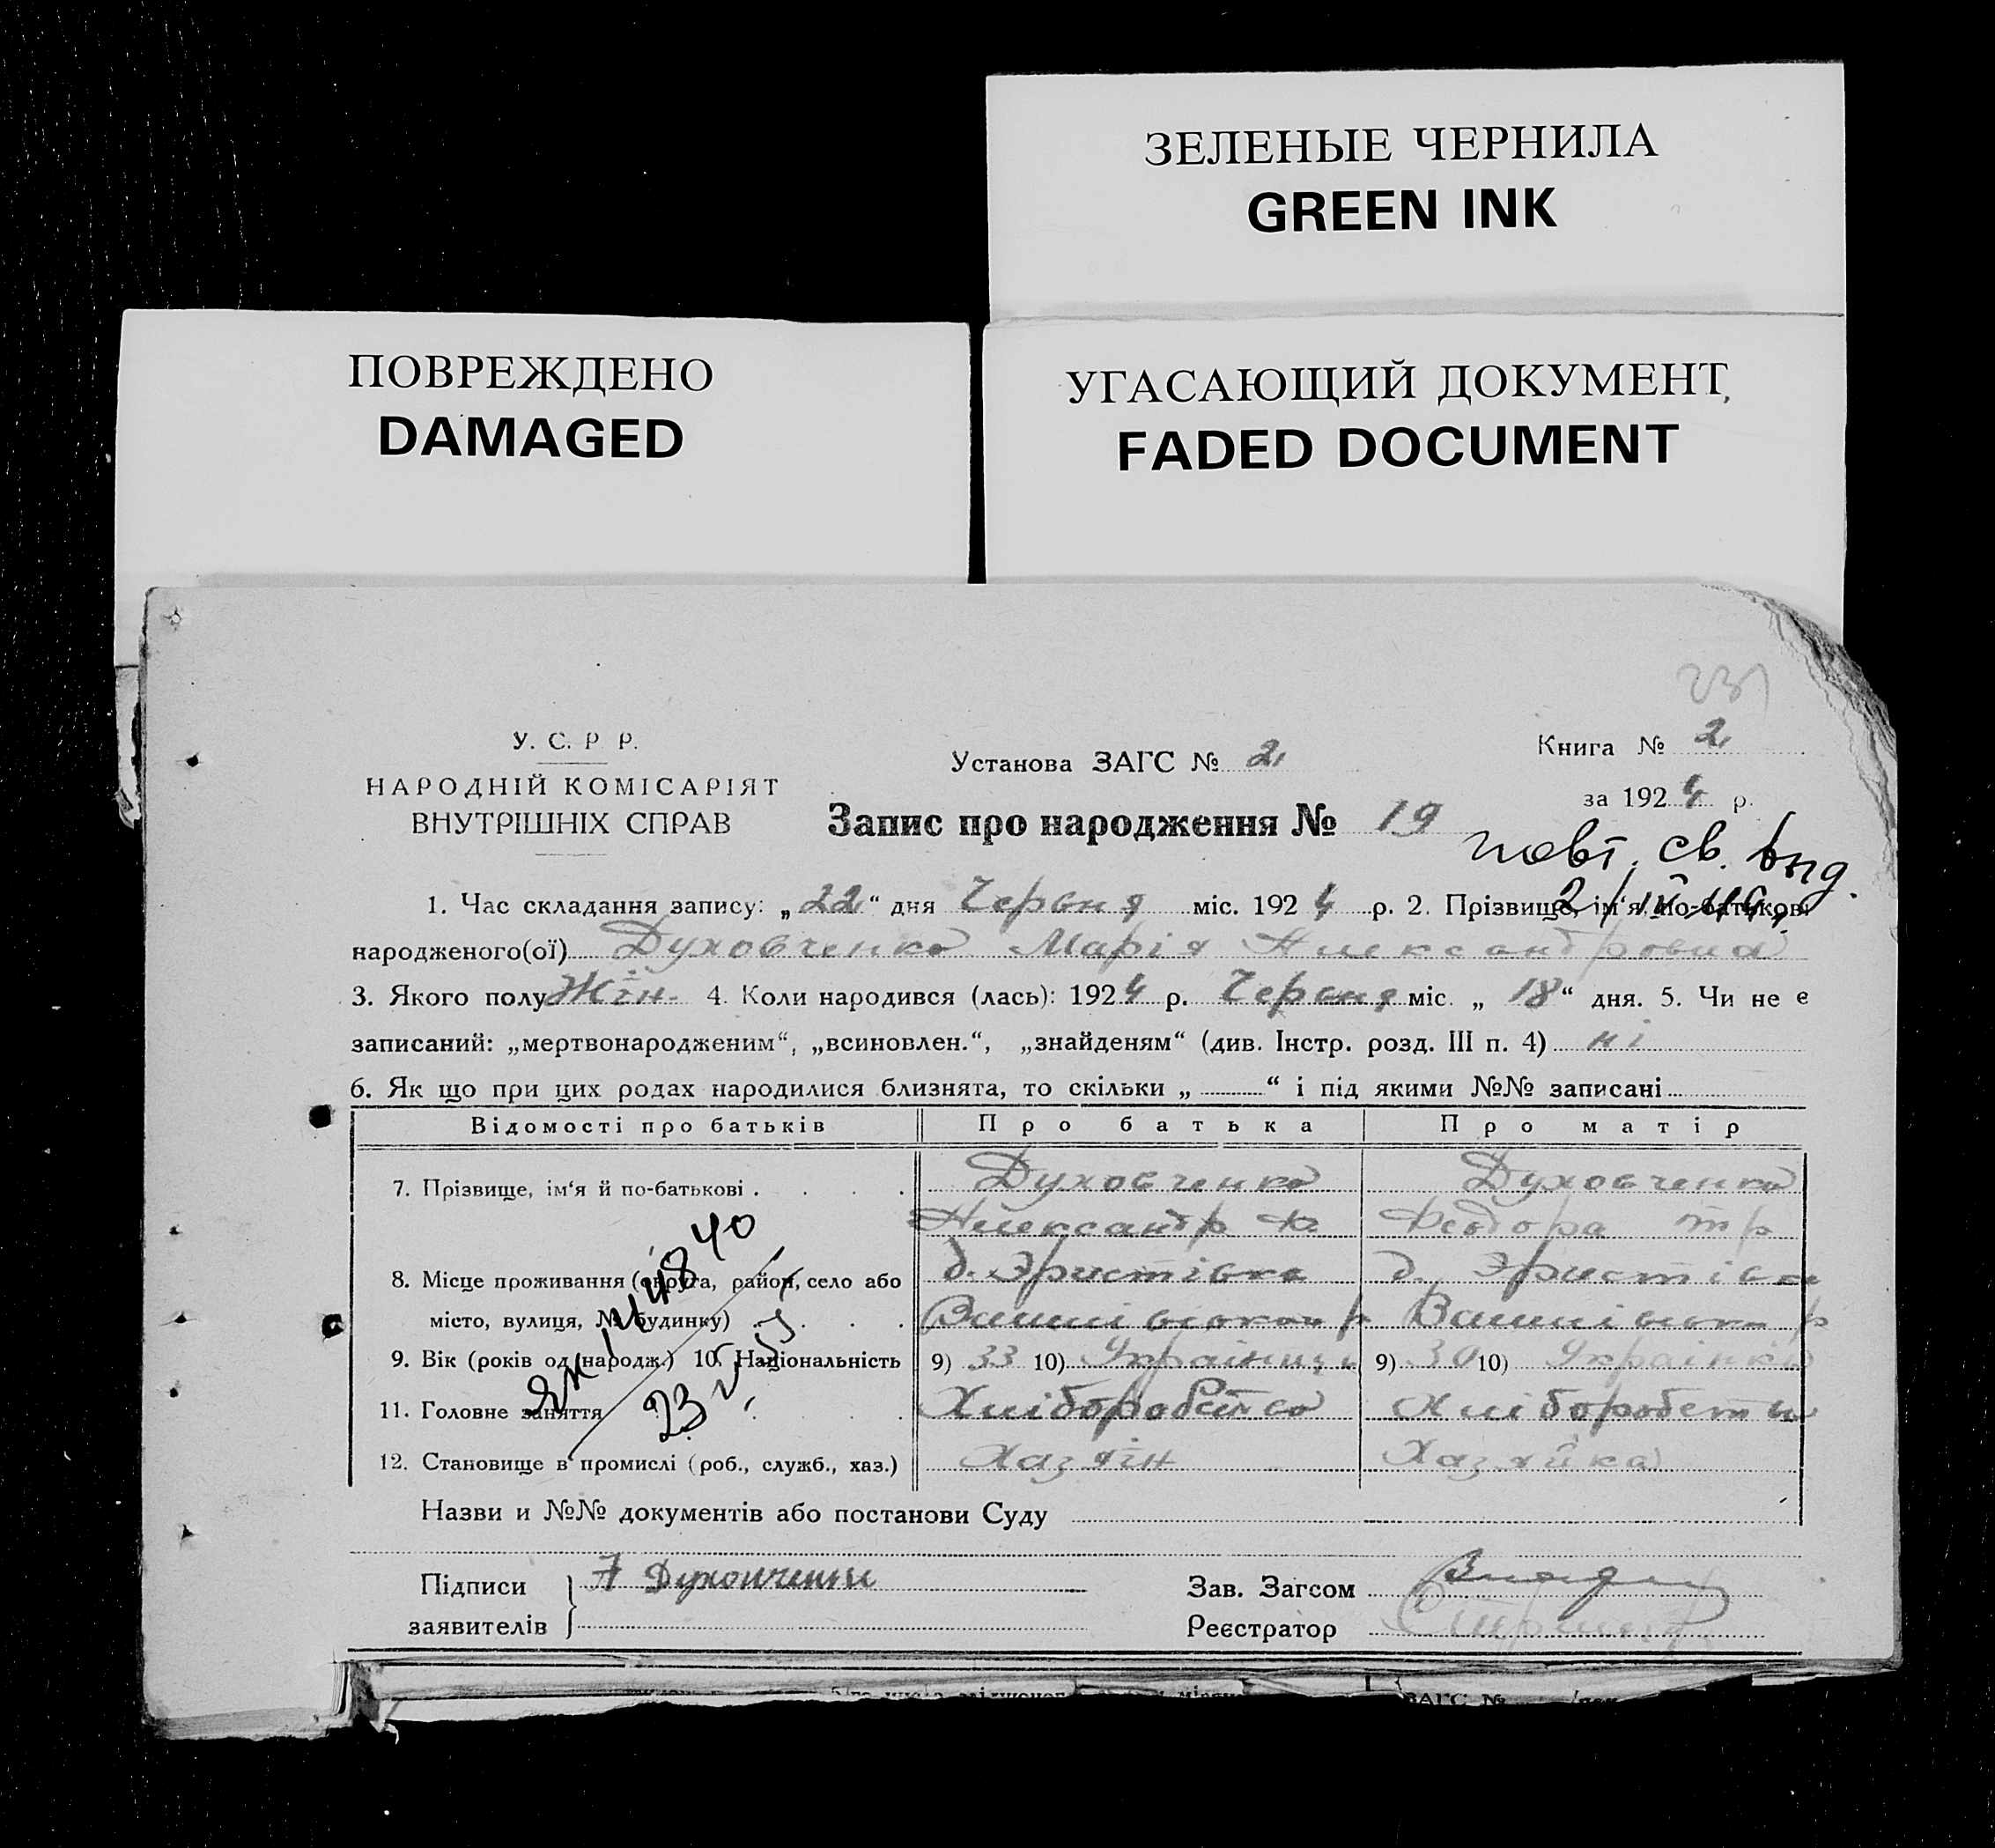 ЗЕЛЕНЫЕ ЧЕРНИЛА
GREEN INK
ПОВРЕЖДЕНО
DAMAGED
УГАСАЮЩИЙ ДОКУМЕНТ
FADED DOCUMENT
У. С. Р Р.
НАРОДНІЙ КОМІСАРІЯТ
ВНУТРІШНІХ СПРАВ
Установа ЗАГС № 2
Книга № 2
за 1924 р.
Запис про народження № 19
повт. св. выд.
1. Час складання запису: „22“ дня Червня міс. 1924 р. 2. Прізвище, ім‘я, по-батькові
народженого(ої) Духовченко Марія Александровна
3. Якого полу Жін. 4. Коли народився (лась): 1924 р. Червня міс. „18“ дня. 5. Чи не є
записаний: „мертвонародженим“, „всиновлен.“, „знайденям“ (див. Інстр. розд. III п. 4) ні
6. Як що при цих родах народилися близнята, то скільки „ “ і під якими №№ записані
Відомості про батьків Про батька Про матір
7. Прізвище, ім‘я й по-батькові . . . . Духовченко Духовченко
Александр Феодора
8. Місце проживання (округа, район, село або д. Эристівка д. Эристівка
місто, вулиця, № будинку) . . . .
9. Вік (років од народж.) 10. Національність 9) 33 10) 9) 30 10) Українка
11. Головне заняття . . . . Хліборобство
12. Становище в промислі (роб., служб., хаз.) Хазяїн Хазяйка
Назви и №№ документів або постанови Суду
Підписи А Духовченко Зав. Загсом
заявителів Реєстратор
ЯК 1448 40